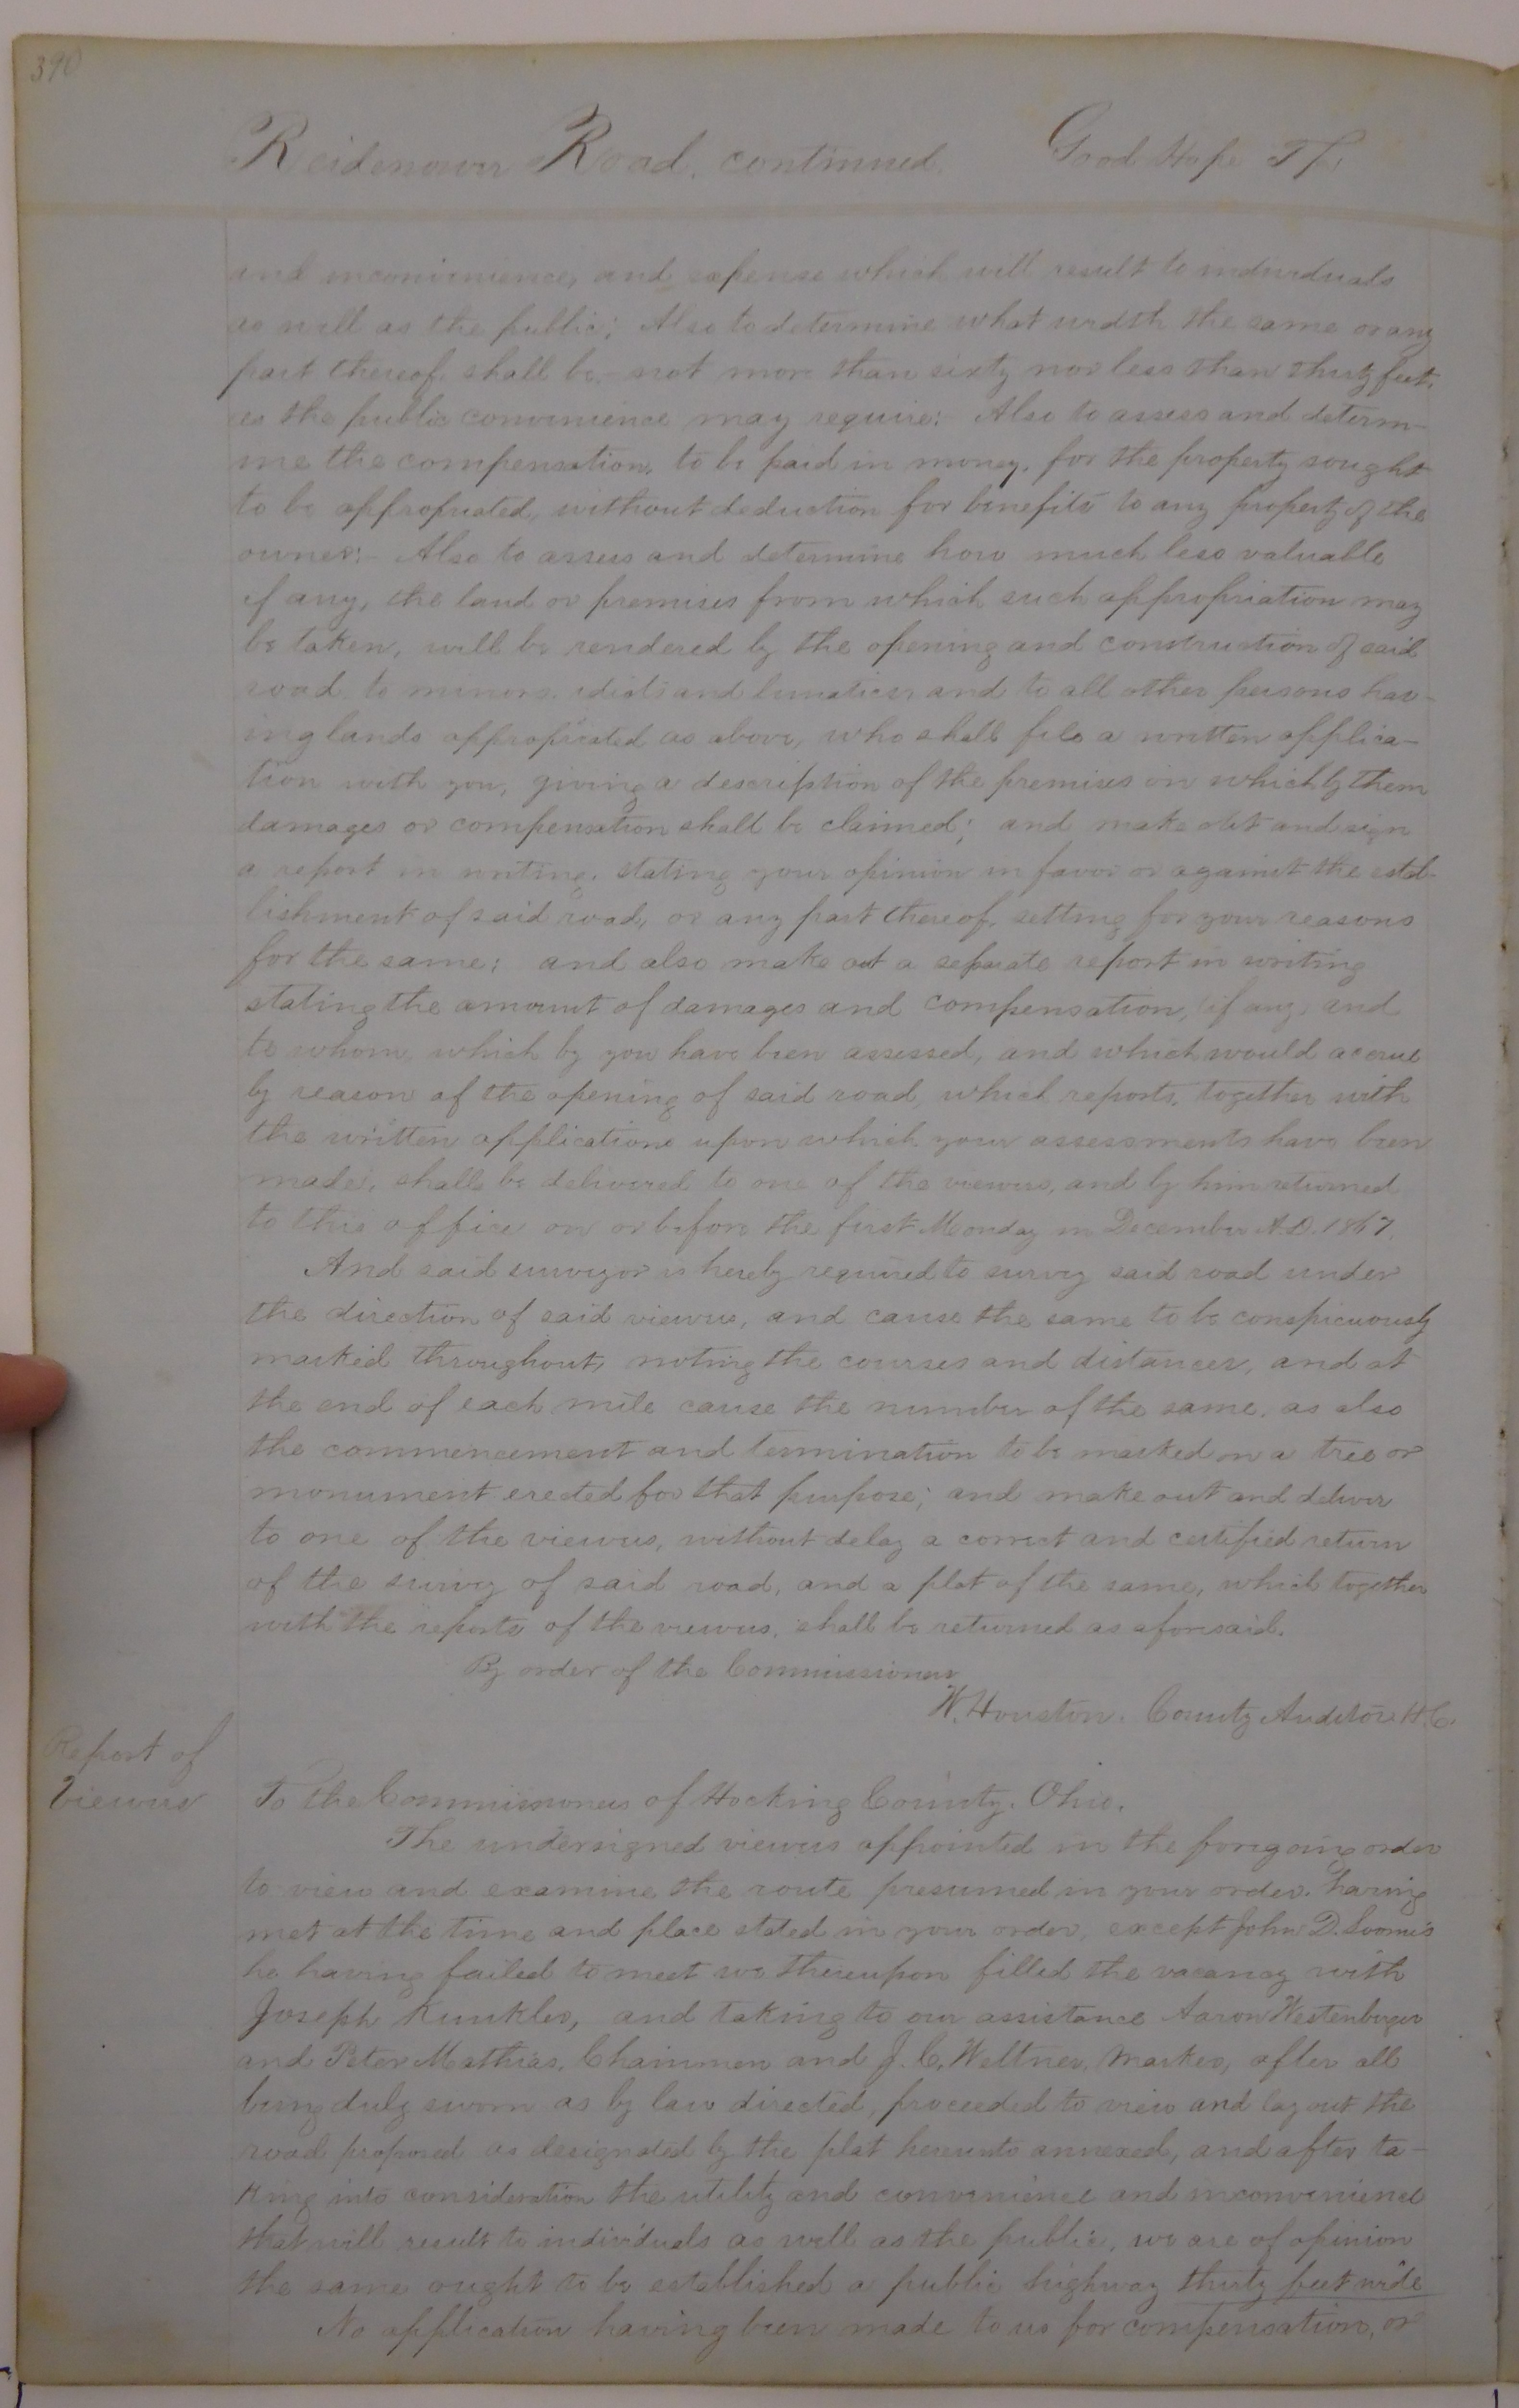 390
Reidenour Road, continued. Good Hope Tp.
and inconvenience, and expense which will result to individuals
as well as the public; Also to determine what width the same or any
part thereof shall be - not more than sixty nor less than thirty feet,
as the public convenience may require: Also to assess and determ-
ine the compensation, to be paid in money, for the property sought
to be appropriated, without deduction for benefits to any property of the
owner: - Also to assess and determine how much less valuable
if any, the land or premises from which such appropriation may
be taken, will be rendered by the opening and construction of said
road to minors, idiots and lunatics, and to all other persons hav-
ing lands appropriated as above, who shall file a written applica-
tion with you, giving a description of the premises on which by them
damages or compensation shall be claimed; and make out and sign
a report in writing, stating your opinion in favor or against the estab-
lishment of said road, or any part thereof, setting for your reasons
for the same; and also make out a separate report in writing
stating the amount of damages and compensation, if any, and
to whom, which by you have been assessed, and which would accrue
by reason of the opening of said road, which reports, together with
the written applications upon which your assessments have been
made, shall be delivered to one of the viewers, and by him returned
to this office on or before the first Monday in December A.D. 1867.
And said surveyor is hereby required to survey said road under
the direction of said viewers, and cause the same to be conspicuously
marked throughout, noting the courses and distances, and at
the end of each mile cause the number of the same, as also
the commencement and termination to be marked on a tree or
monument erected for that purpose; and make out and deliver
to one of the viewers, without delay a correct and certified return
of the survey of said road, and a plat of the same, which together
with the reports of the viewers, shall be returned as aforesaid.
By order of the Commissioners
W. Houston. County Auditor H.C.
Report of
Viewers
To the Commissioners of Hocking County, Ohio.
The undersigned viewers appointed in the foregoing order
to view and examine the route presumed in your order, having
met at the time and place stated in your order, except John D. Loomis
he having failed to meet we thereupon filled the vacancy with
Joseph Kunkler, and taking to our assistance Aaron Westenberger
and Peter Mathias, Chainmen and J. C. Weltner, Marker, after all
being duly sworn as by law directed, proceeded to view and lay out the
road proposed as designated by the plat hereunto annexed, and after ta-
king into consideration the utility and convenience and inconvenience
that will result to individuals as well as the public, we are of opinion
the same ought to be established a public highway thirty feet wide
No application having been made to us for compensation, or